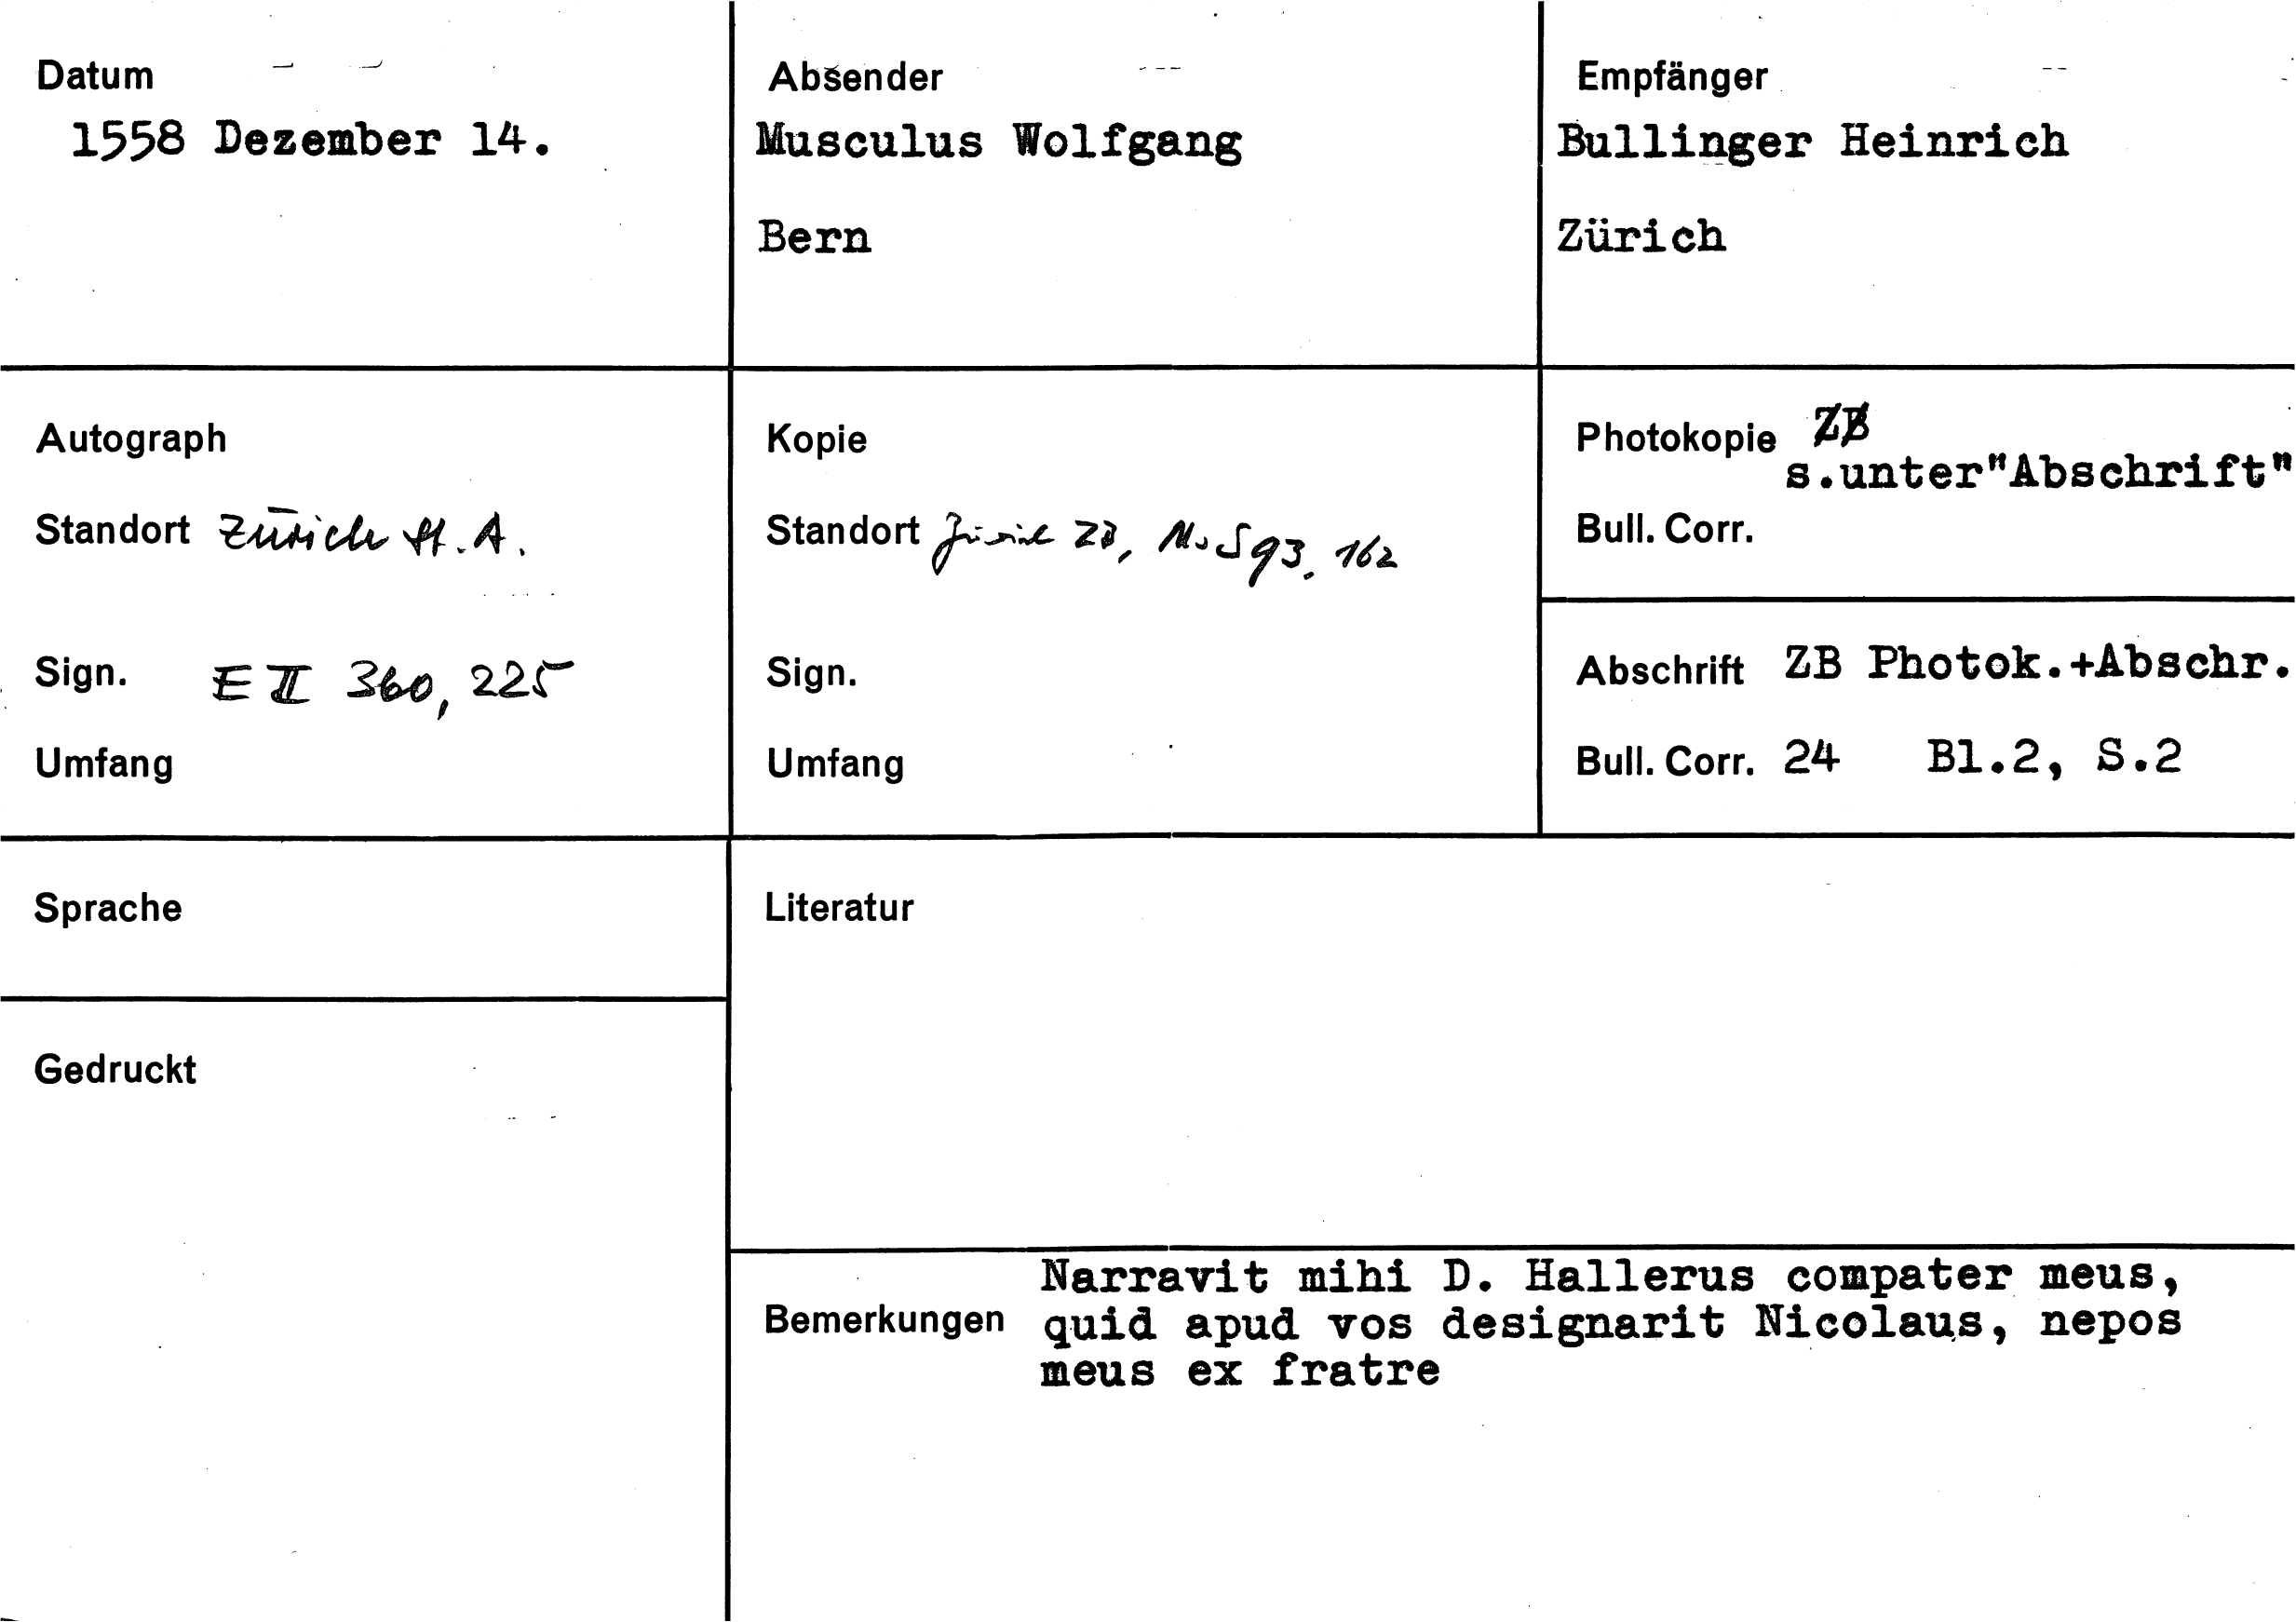 Datum
1558 Dezember 14.
Absender
Musculus Wolfgang
Bern
Empfänger
Bullinger Heinrich
Zürich
Autograph
Standort Zürich St.A.
Sign. E II 360, 225
Umfang
Kopie
Standort Zürich ZB, Ms S 93, 162
Sign.
Umfang
Photokopie ZB
s.unter"Abschrift"
Bull. Corr.
Abschrift ZB Photok.+Abschr.
Bull. Corr. 24 Bl.2, S.2
Sprache
Gedruckt
Literatur
Bemerkungen
Narravit mihi D. Hallerus compater meus,
quid apud vos designarit Nicolaus, nepos
meus ex fratre